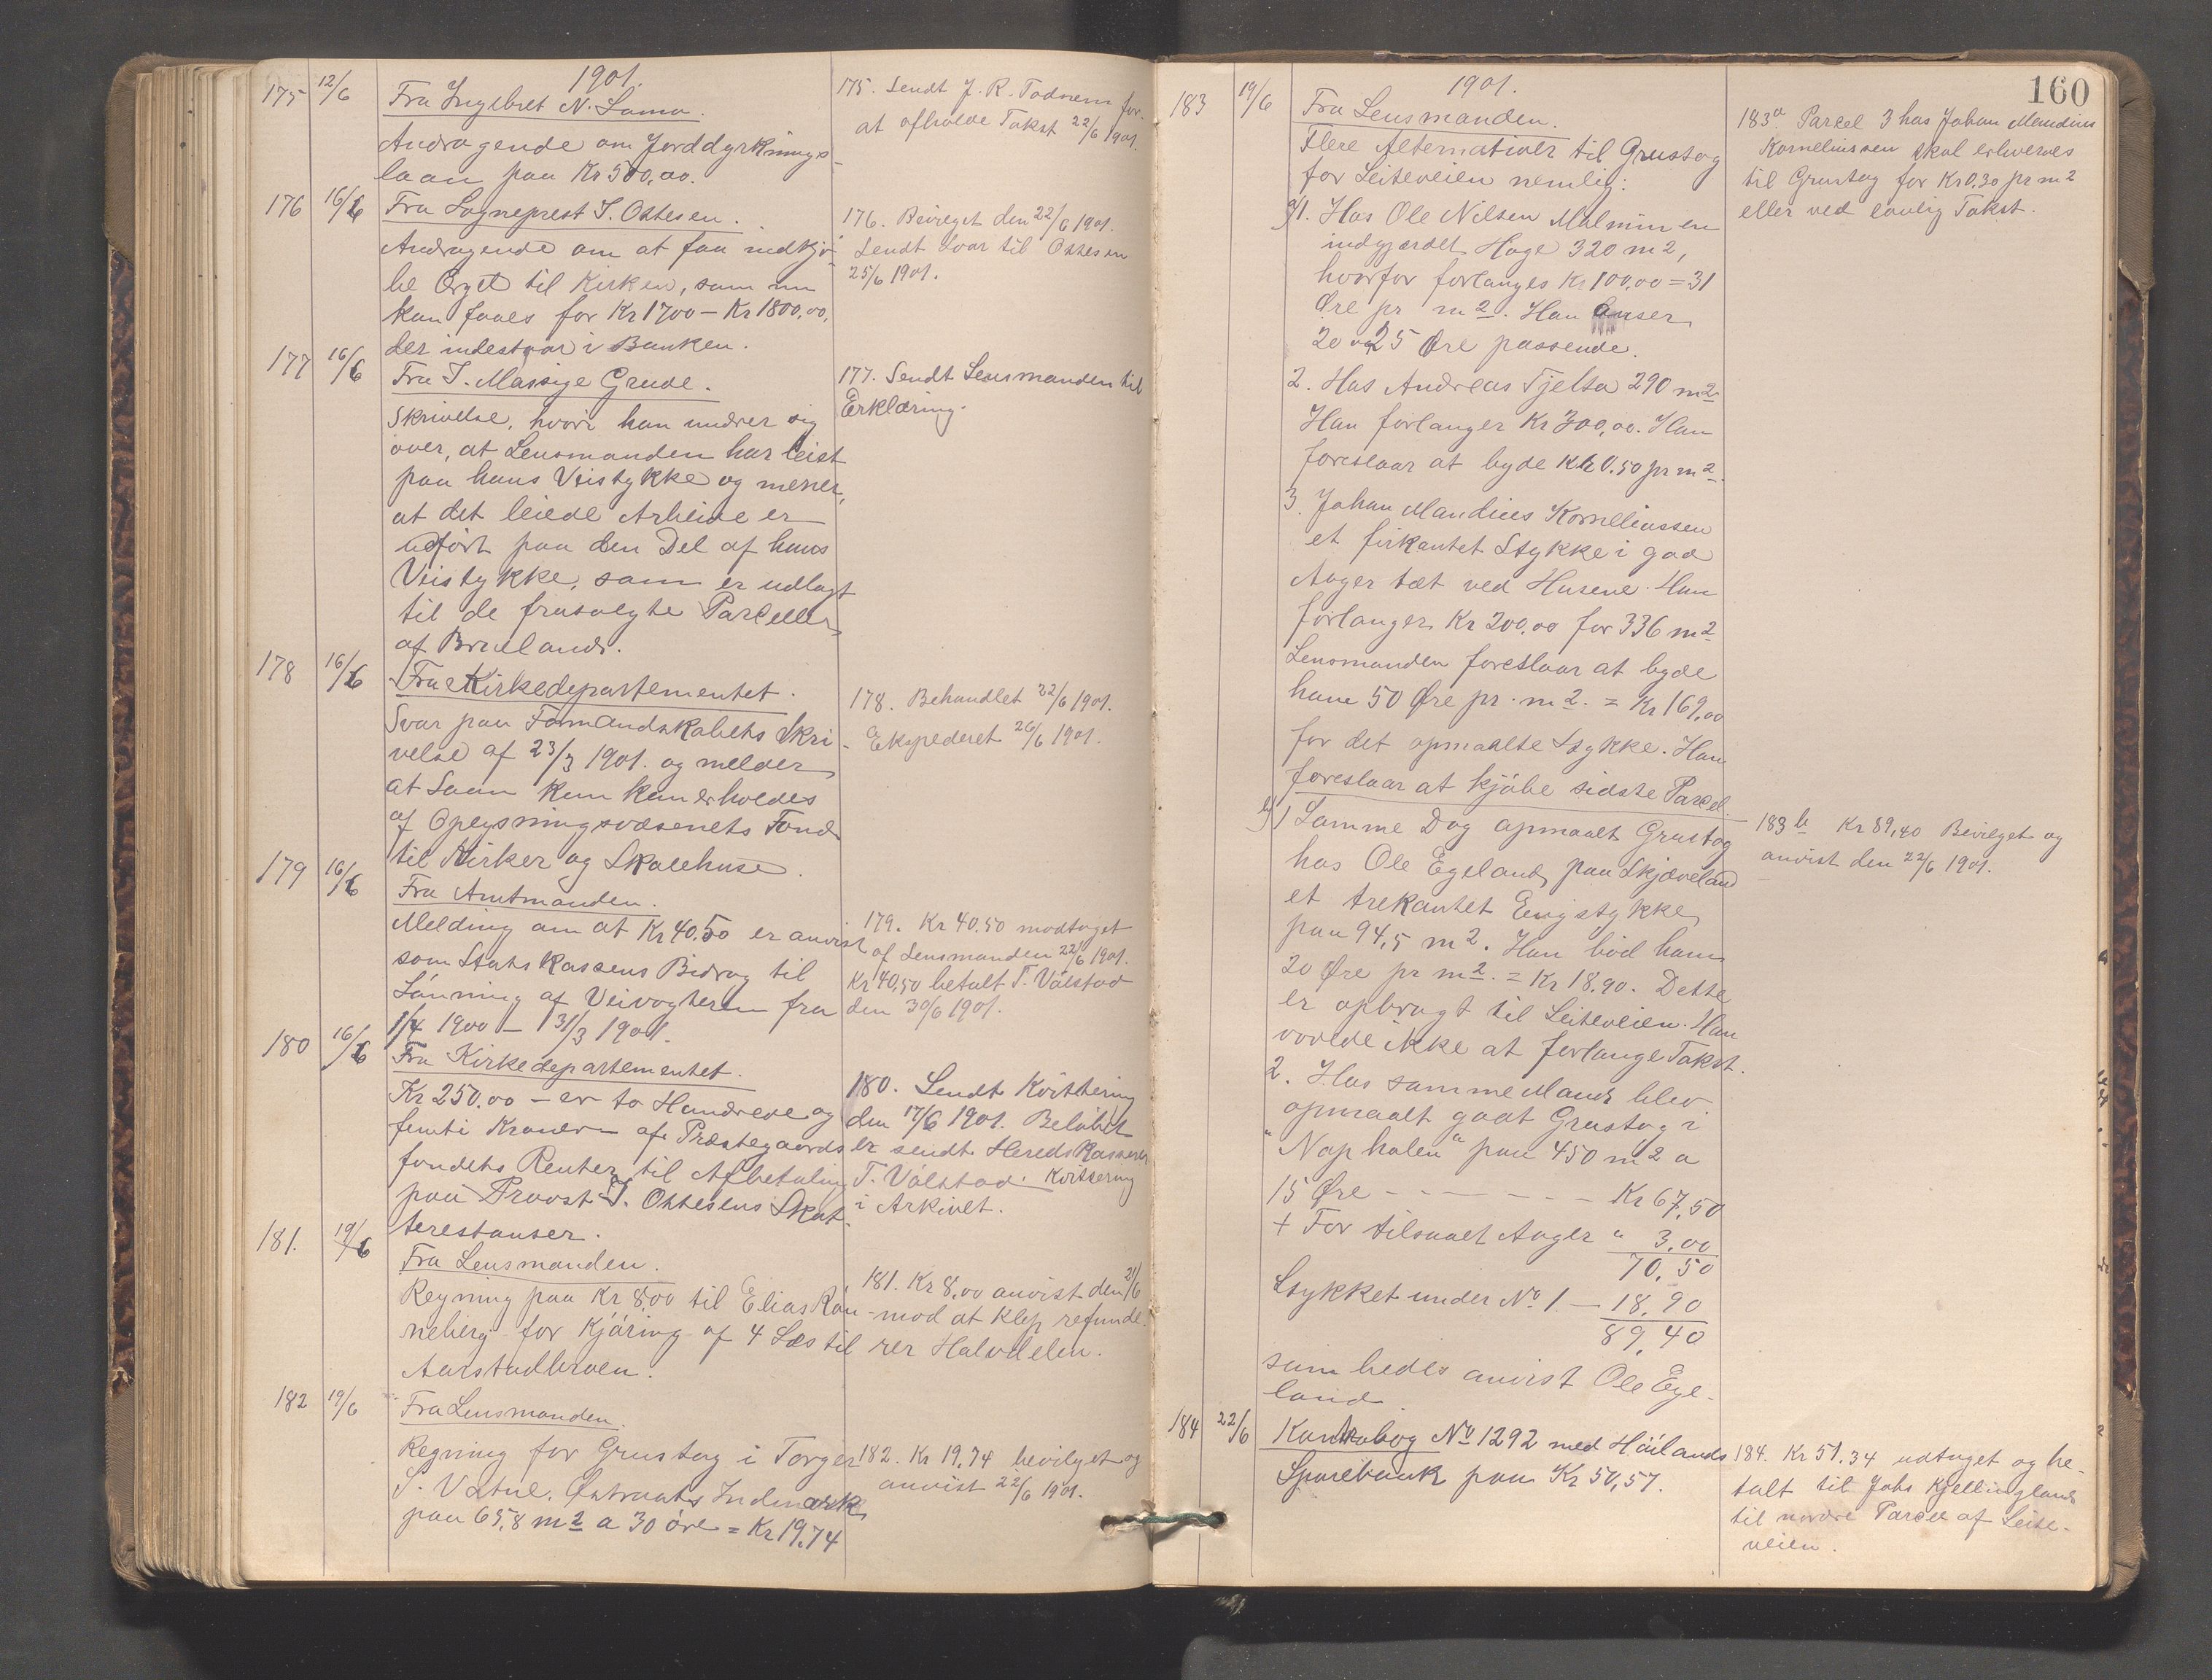 1901.
175 12/6 Fra Ingebret N. Lama.
Andragende om Jorddyrknings-
laan paa Kr 500,00.
175. Sendt J. R. Todnem for
at afholde Takst 22/6 1901.
176 16/6 Fra Sogneprest S. Ottesen.
Andragende om at faa indkjø-
be Orgel til Kirken, som nu
kan faaes for Kr 1700 - Kr 1800,00,
der indestaar i Banken.
176. Bevilget den 22/6 1901.
Sendt Svar til Ottesen
25/6 1901.
177 16/6 Fra T. Massige Grude.
Skrivelse, hvori han undrer sig
over, at Lensmanden har leiet
paa hans Veistykke og mener,
at det leiede Arbeide er
udført paa den Del af hans
Veistykke, som er udlagt
til de frasolgte Parceller
af Bruland.
177. Sendt Lensmanden til
Erklæring.
178 16/6 Fra Kirkedepartementet.
Svar paa Formandskabets Skri-
velse af 23/3 1901. og melder
at Laan kun kan erholdes
af Oplysningsvæsenets Fond
til Kirker og Skolehuse.
178. Behandlet 22/6 1901.
Ekspederet 26/6 1901.
179 16/6 Fra Amtmanden.
Melding om at Kr 40.50 er anvist
som Statskassens Bidrag til
Lønning af Veivogteren fra
1/4 1900 - 31/3 1901.
179. Kr 40.50 modtaget
af Lensmanden 22/6 1901.
Kr 40,50 betalt T. Vålstad
den 30/6 1901.
180 16/6 Fra Kirkedepartementet.
Kr 250.00 - er to Hundrede og
femti Kroner - af Præstegaards
fondets Renter til Afbetaling
paa Provst S. Ottesens Skat-
terestanser.
180. Sendt Kvittering
den 17/6 1901. Beløbet
er sendt Heredskasserer
T. Vålstad. Kvittering
i Arkivet.
181. 19/6 Fra Lensmanden.
Regning paa Kr 8,00 til Elias Rön-
neberg for Kjöring af 4 Læs til
Aarstadbroen.
181. Kr 8,00 anvist den 21/6
mod at Klep refunde-
rer Halvdelen.
182 19/6 Fra Lensmanden.
Regning for Grustag i Torger
S. Vatne, Østraats Indmark
paa 65,8 m2 a 30 öre = Kr 19.74
182. Kr 19.74 bevilget og
anvist 22/6 1901.
160
1901.
183 19/6 Fra Lensmanden.
Flere Alternativer til Grustag
for Leiteveien nemlig:
a) 1. Hos Ole Nilsen Malmin en
indgjærdet Hage 320 m2,
hvorfor forlanges Kr 100,00 = 31
Øre pr m2. Han anser
20 a 25 Øre passende.
2. Hos Andreas Tjelta 290 m2
Han forlanger Kr 300,00. Han
foreslaar at byde Kr 0.50 pr m2.
3. Johan Mandius Korneliussen
et firkantet Stykke i god
Ager tæt ved Husene. Han
forlanger Kr 200,00 for 336 m2
Lensmanden foreslaar at byde
ham 50 Øre pr. m2. = Kr 169,00
for det opmaalte Stykke. Han
foreslaar at kjøbe sidste Parcel.
183a. Parcel 3 hos Johan Mandius
Korneliussen skal erhverves
til Grustag for Kr 0,30 pr m2
eller ved lovlig Takst.
b) 1 Samme Dag opmaalt Grustag
hos Ole Egeland paa Skjæveland
et trekantet Engstykke
paa 94,5 m2. Han böd ham
20 Øre pr m2. = Kr 18.90. Dette
er opbrugt til Leiteveien. Han
vovede ikke at forlange Takst.
2. Hos samme Mand blev
opmaalt godt Grustag i
"Naphalen" paa 450 m2 a
15 Øre - - - - - - - Kr 67,50
+ For tilsaaet Ager " 3.00
70,50
Stykket under No 1. - 18,90
89,40
som bedes anvist Ole Ege-
land.
183 b Kr 89,40 Bevilget og
anvist den 22/6 1901.
184 22/6 Kontrabog No 1292 med Höilands
Sparebank paa Kr 50,57.
184. Kr 51.34 udtaget og be-
talt til Johs Kjellingland
til nordre Parcel af Leite-
veien.